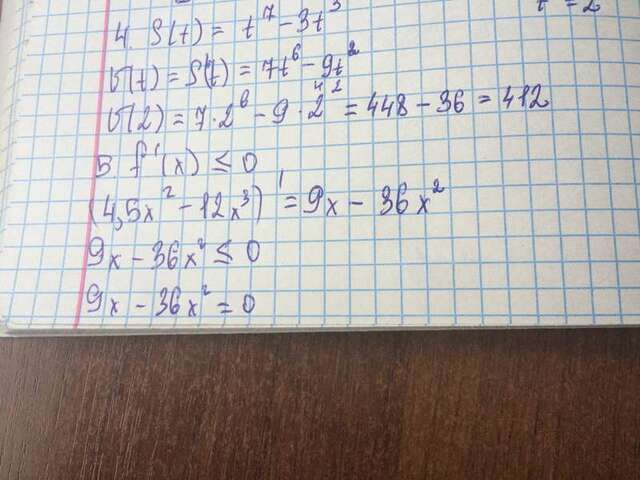 t = 2
4. S(t) = t⁷ - 3t³
V(t) = S'(t) = 7t⁶ - 9t²
V(2) = 7·2⁶ - 9·2² = 448 - 36 = 412
5. f'(x) ≤ 0
(4,5x² - 12x³)' = 9x - 36x²
9x - 36x² ≤ 0
9x - 36x² = 0